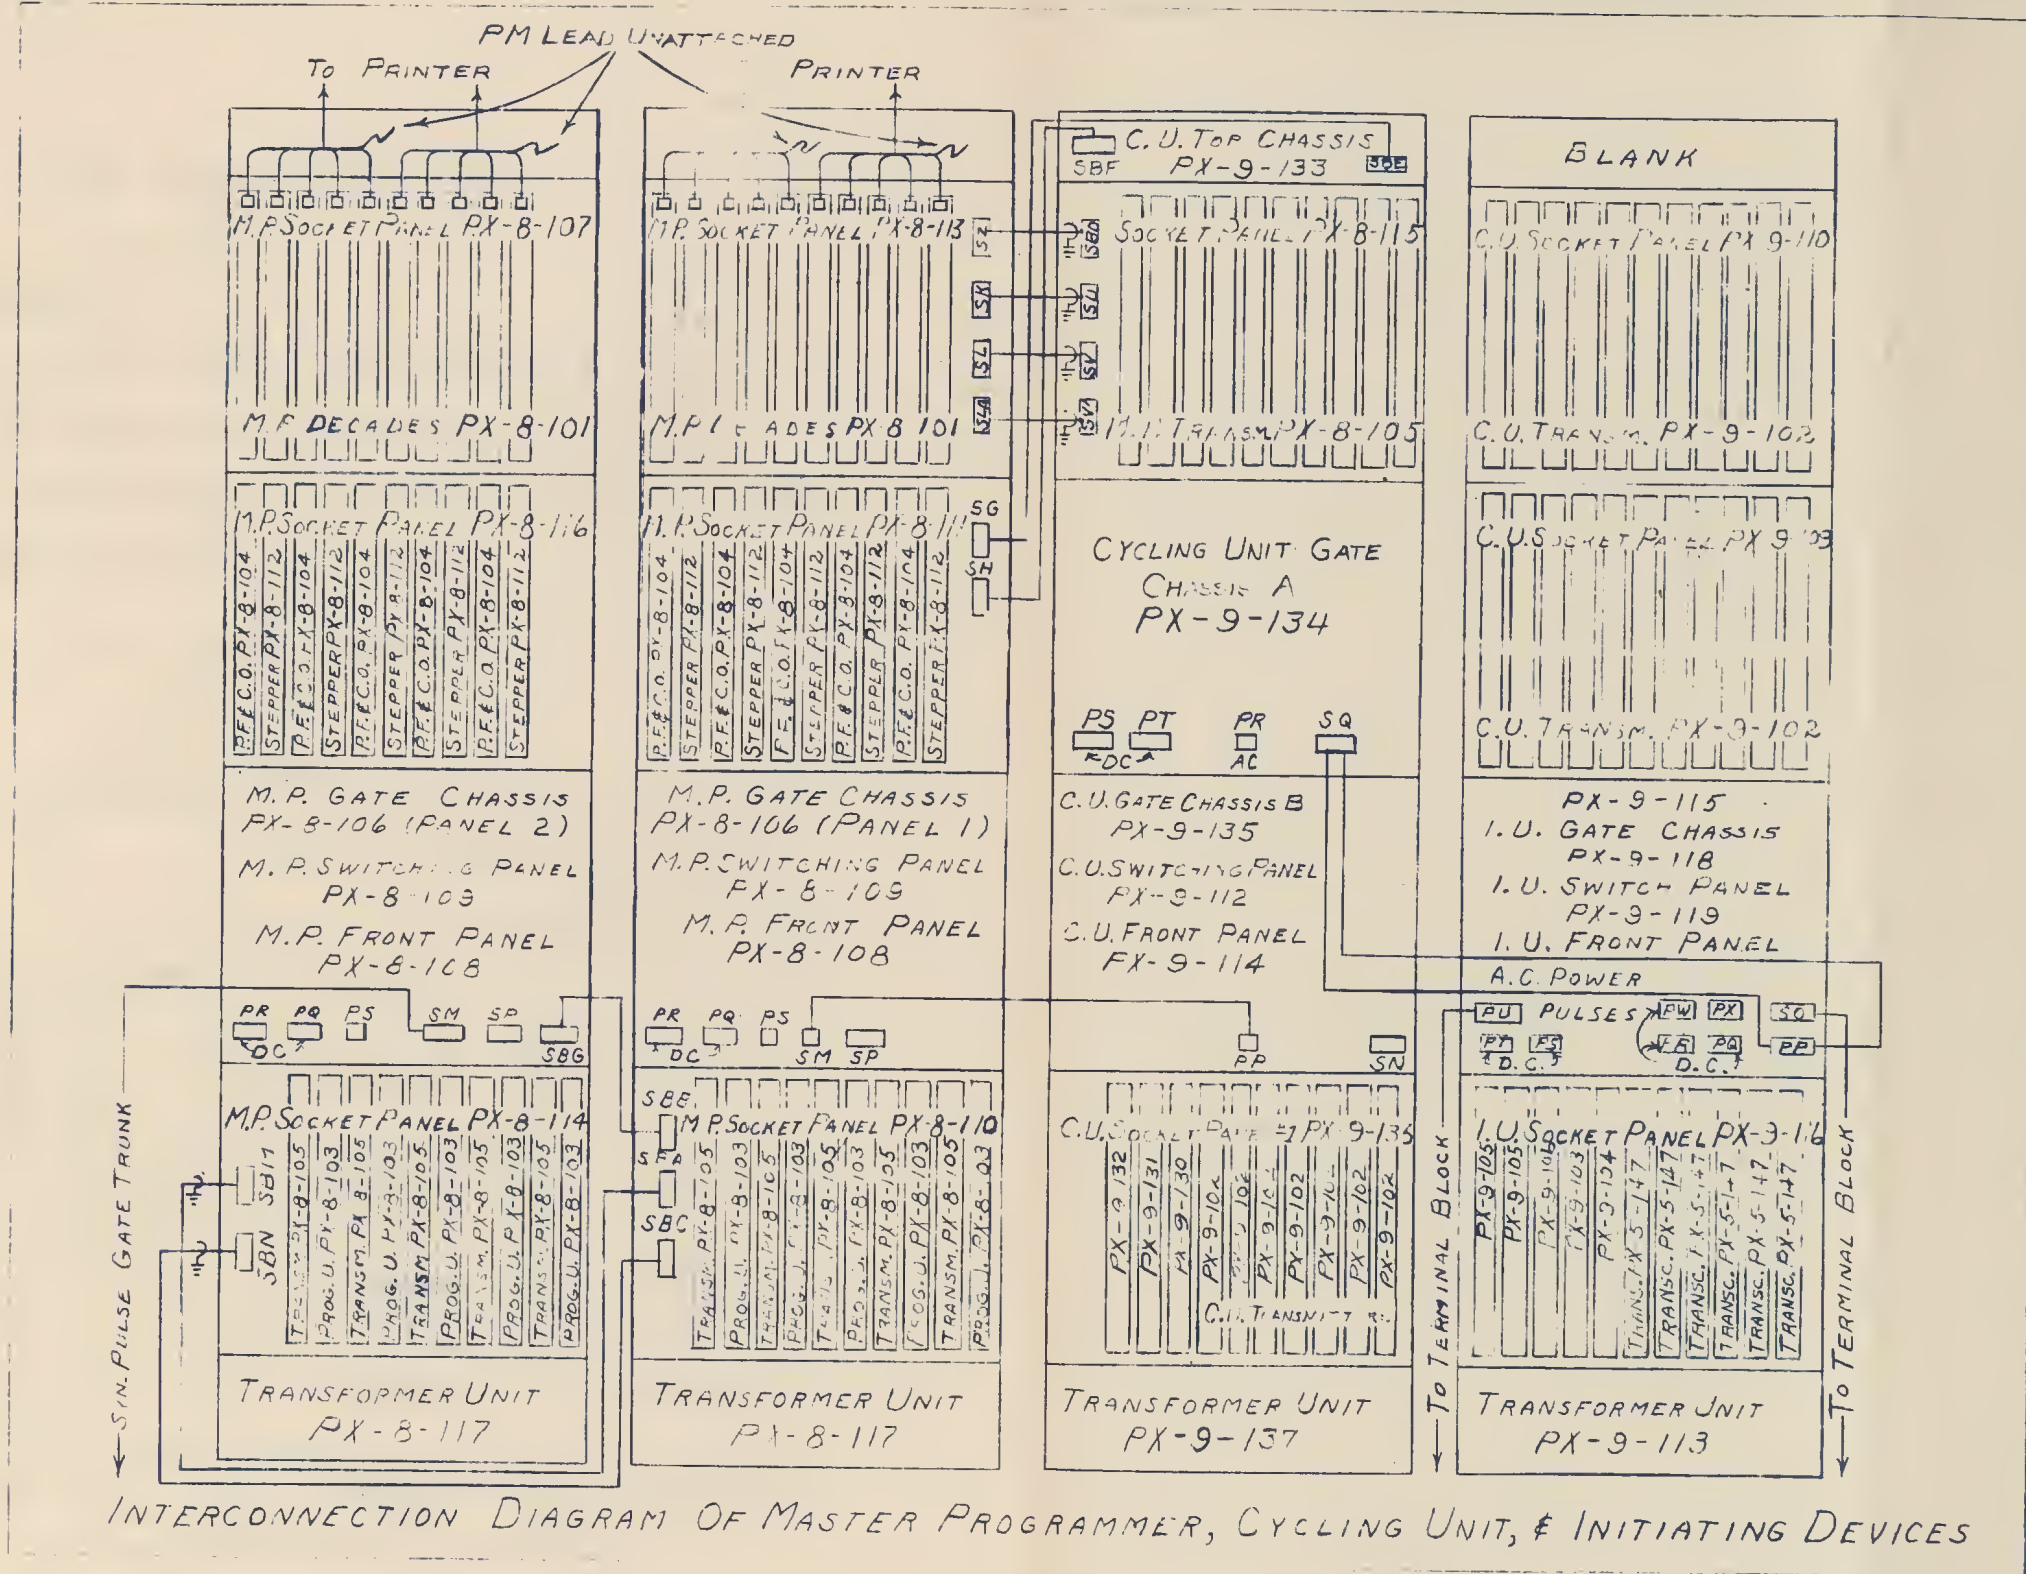 PM LEAD UNATTACHED
TO PRINTER
PRINTER
M.P. SOCKET PANEL PX-8-107
M.P. DECADES PX-8-101
M.P. SOCKET PANEL PX-8-116
P.F. & C.O. PX-8-104
STEPPER PX-8-112
P.F. & C.O. PX-8-104
STEPPER PX-8-112
P.F. & C.O. PX-8-104
STEPPER PX-8-112
P.F. & C.O. PX-8-104
STEPPER PX-8-112
P.F. & C.O. PX-8-104
STEPPER PX-8-112
M.P. GATE CHASSIS
PX-8-106 (PANEL 2)
M.P. SWITCHING PANEL
PX-8-109
M.P. FRONT PANEL
PX-8-108
PR PQ PS SM SP
DC
SBG
M.P. SOCKET PANEL PX-8-114
SBM
SBN
TRANSM. PX-8-105
PROG. U. PX-8-103
TRANSM. PX-8-105
PROG. U. PX-8-103
TRANSM. PX-8-105
PROG. U. PX-8-103
TRANSM. PX-8-105
PROG. U. PX-8-103
TRANSM. PX-8-105
PROG. U. PX-8-103
TRANSFORMER UNIT
PX-8-117
SIN. PULSE GATE TRUNK
M.P. SOCKET PANEL PX-8-113
SK
SL
SLA
M.P. DECADES PX-8-101
M.P. SOCKET PANEL
SG
SH
P.F. & C.O. PX-8-104
STEPPER PX-8-112
P.F. & C.O. PX-8-104
STEPPER PX-8-112
P.F. & C.O. PX-8-104
STEPPER PX-8-112
P.F. & C.O. PX-8-104
STEPPER PX-8-112
P.F. & C.O. PX-8-104
STEPPER PX-8-112
M.P. GATE CHASSIS
PX-8-106 (PANEL 1)
M.P. SWITCHING PANEL
PX-8-109
M.P. FRONT PANEL
PX-8-108
PR PQ PS
DC SM SP
SBE
M.P. SOCKET PANEL PX-8-110
SBC
TRANSM. PX-8-105
PROG. U. PX-8-103
TRANSM. PX-8-105
PROG. U. PX-8-103
TRANSM. PX-8-105
PROG. U. PX-8-103
TRANSM. PX-8-105
PROG. U. PX-8-103
TRANSM. PX-8-105
PROG. U. PX-8-103
TRANSFORMER UNIT
PX-8-117
C.U. TOP CHASSIS
SBF PX-9-133
SOCKET PANEL PX-8-115
SU
SV
M.P. TRANSM. PX-8-105
CYCLING UNIT GATE
CHASSIS A
PX-9-134
PS PT PR SQ
DC AC
C.U. GATE CHASSIS B
PX-9-135
C.U. SWITCHING PANEL
PX-9-112
C.U. FRONT PANEL
PX-9-114
PP SN
C.U. SOCKET PANEL #1 PX-9-136
PX-9-132
PX-9-131
PX-9-130
PX-9-102
PX-9-102
PX-9-102
PX-9-102
PX-9-102
PX-9-102
PX-9-102
TRANSFORMER UNIT
PX-9-137
TO TERMINAL BLOCK
BLANK
C.U. SOCKET PANEL PX-9-110
C.U. TRANSM. PX-9-102
C.U. SOCKET PANEL PX-9-103
C.U. TRANSM. PX-9-102
PX-9-115
I.U. GATE CHASSIS
PX-9-118
I.U. SWITCH PANEL
PX-9-119
I.U. FRONT PANEL
A.C. POWER
PU PULSES PW PX SO
PT PS PQ PP
D.C. D.C.
I.U. SOCKET PANEL PX-9-116
PX-9-105
PX-9-105
PX-9-103
PX-9-104
TRANSC. PX-5-147
TRANSC. PX-5-147
TRANSC. PX-5-147
TRANSC. PX-5-147
TRANSC. PX-5-147
TRANSC. PX-5-147
TRANSFORMER UNIT
PX-9-113
TO TERMINAL BLOCK
INTERCONNECTION DIAGRAM OF MASTER PROGRAMMER, CYCLING UNIT, & INITIATING DEVICES